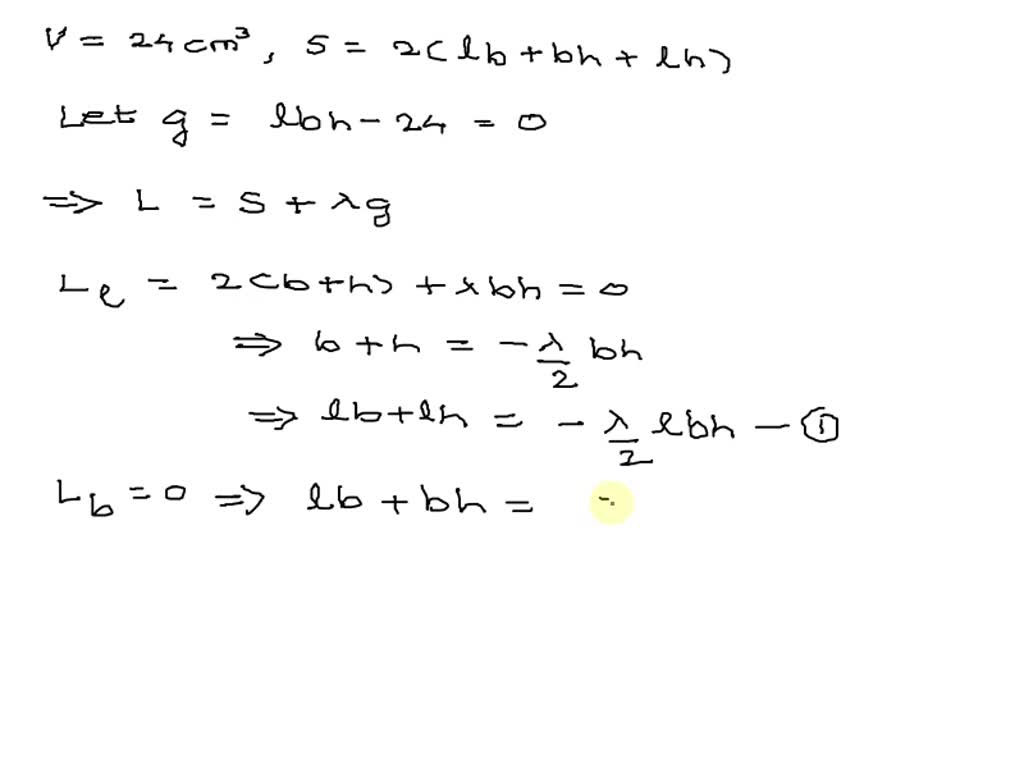 V = 24 cm³, S = 2(lb + bh + lh)
Let g = lbh - 24 = 0
⇒ L = S + λg
L_l = 2(b+h) + λbh = 0
⇒ b + h = -λ/2 bh
⇒ lb + lh = -λ/2 lbh — ①
L_b = 0 ⇒ lb + bh = -